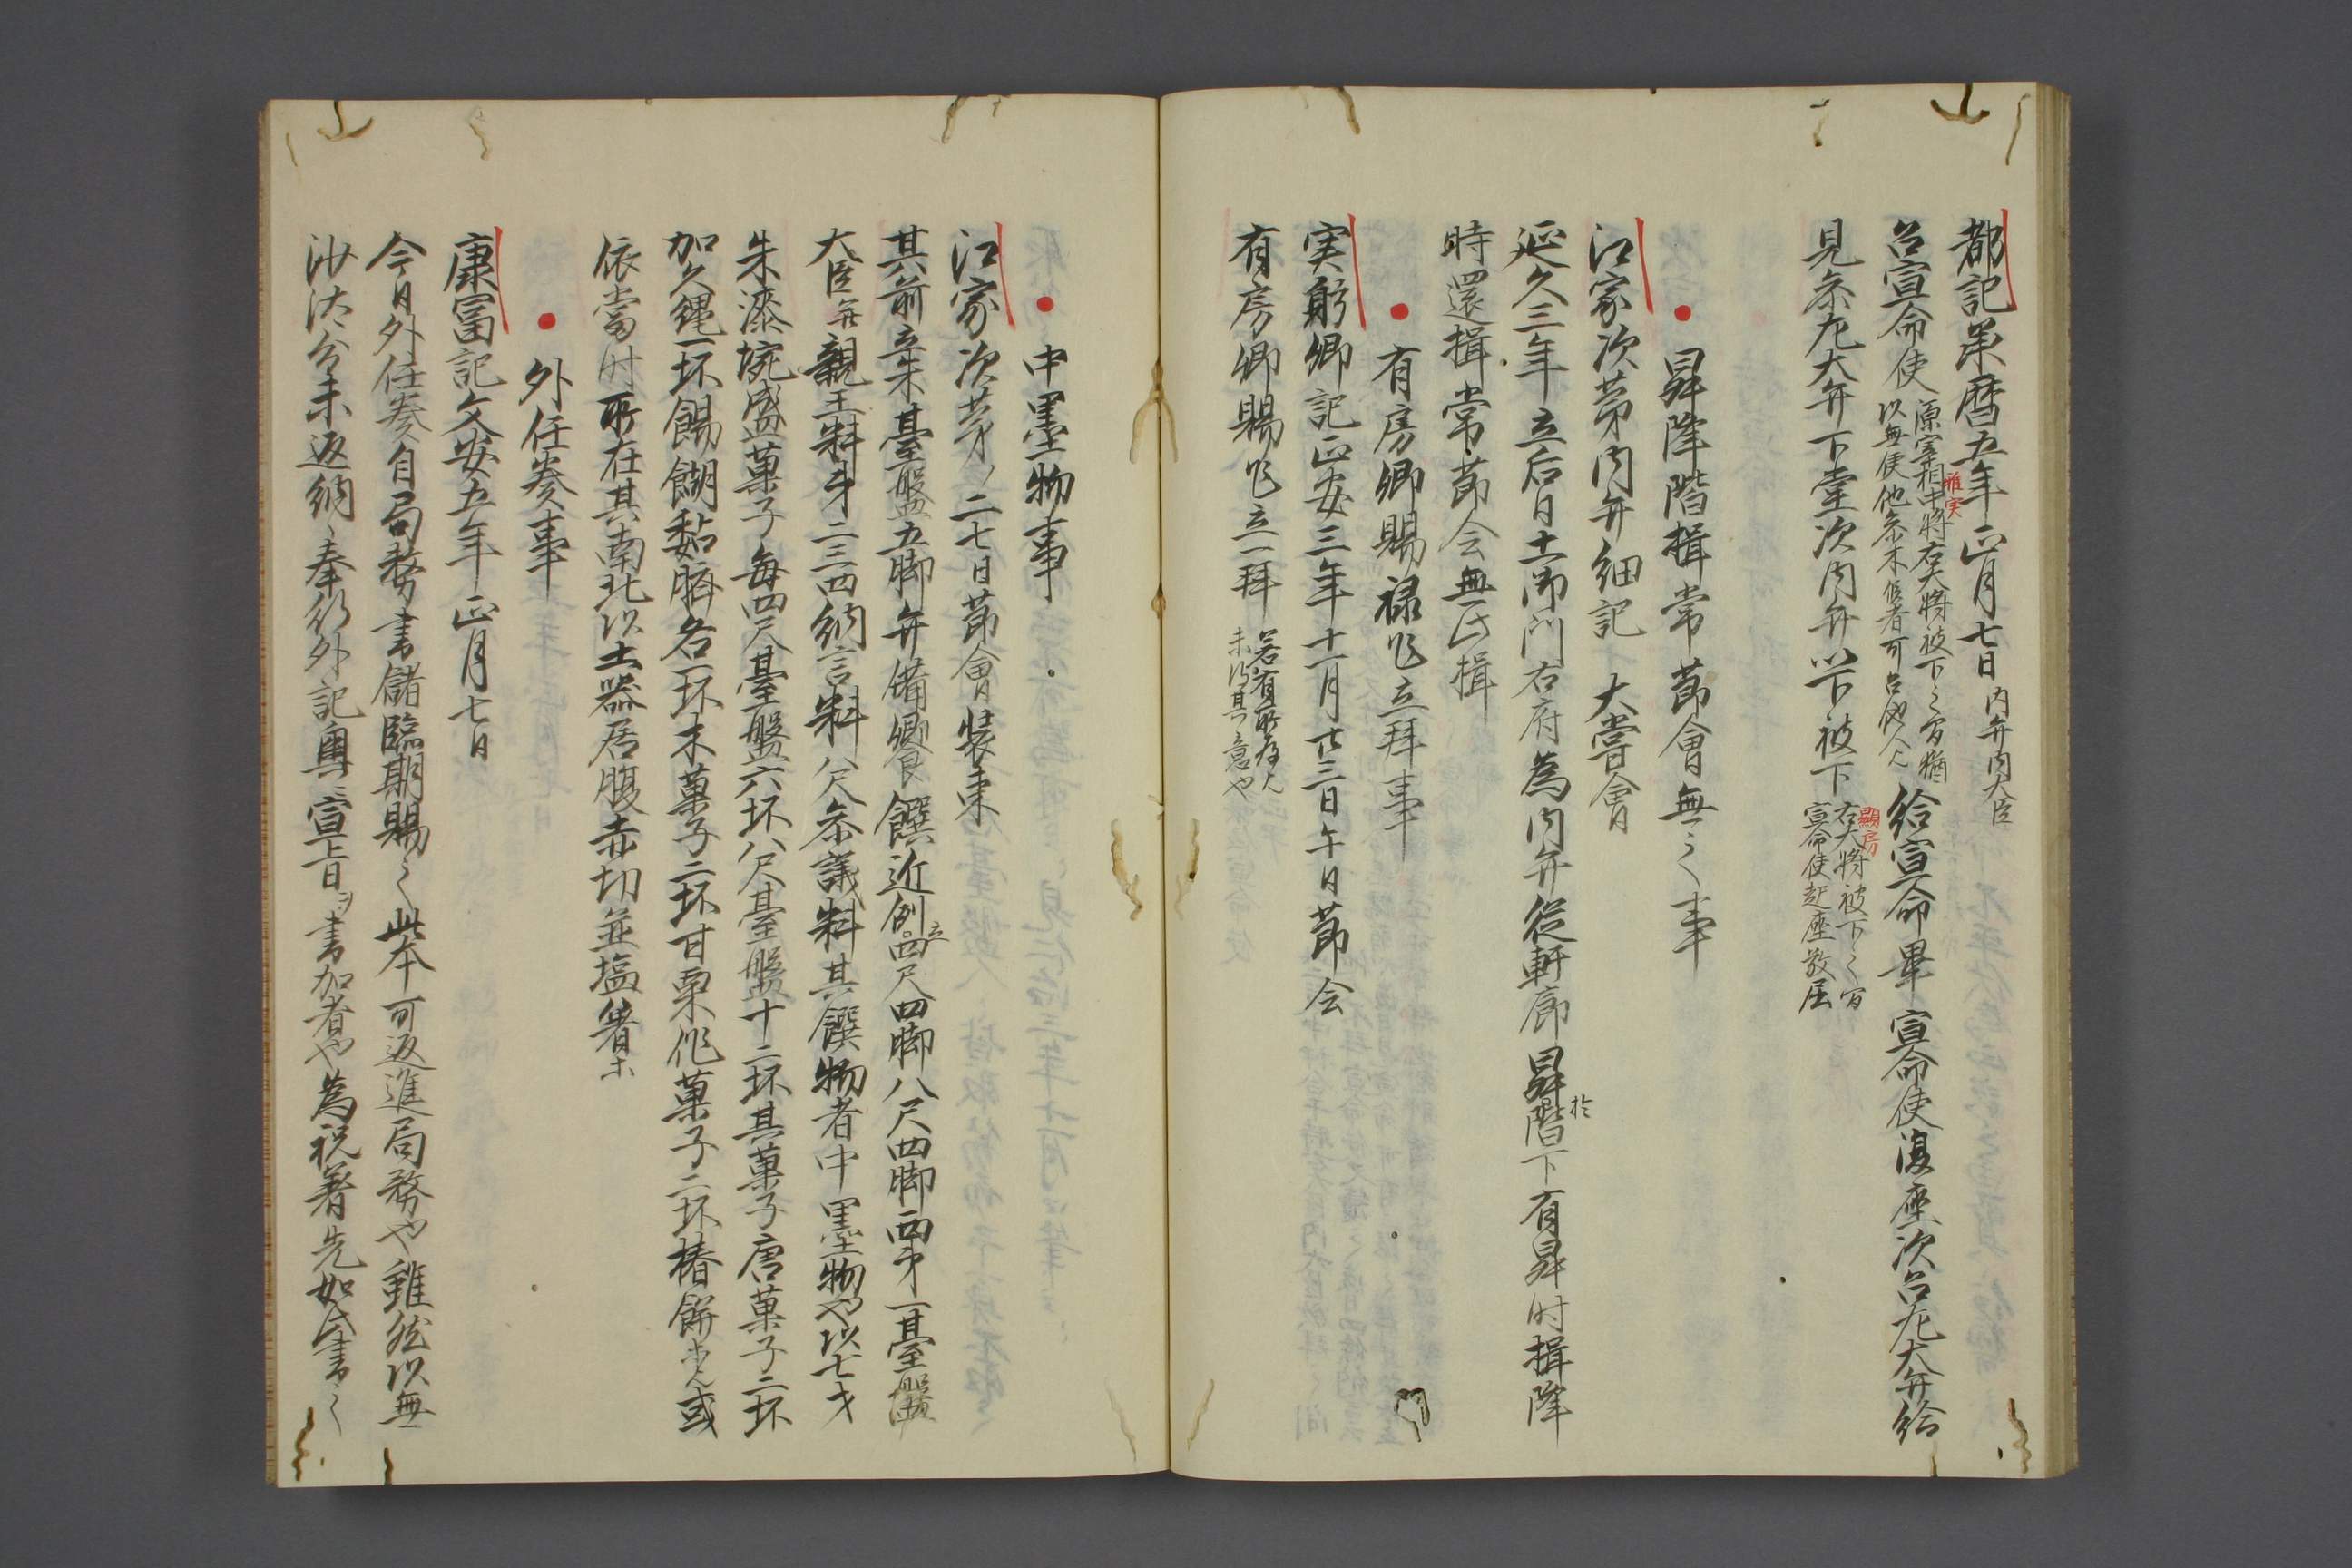 都記承暦五年正月七日 内弁内大臣
召宣命使 源宰相中将右大将被下之間猶
雅実
以無便他参木候者可召他人 給宣命畢 宣命使復座次召左大弁給
見参左大弁下堂次内弁以下被下 右大将被下之間
顕房
宣命使起座敬屈
昇降階揖常節會無之事
江家次第内弁細記 大嘗會
延久三年立后日土御門右府為内弁從軒廊昇階下有昇时揖降
於
時還揖常節会無此揖
有房卿賜禄後立拜事
実躬卿記正安三年十一月廿三日午日節会
有房卿賜後立一拜 若有所存欤
未得其意也
中墨物事
江家次第ノ二七日節會装束
其前立朱臺盤五脚弁備饗饌近例四尺四脚八尺四脚両弟一臺盤
立
大臣并親王料弟二三四納言料八尺参議料其饌物者中墨物也以七寸
朱漆埦盛菓子毎四尺臺盤六坏八尺臺盤十二坏其菓子唐菓子二坏
加久縄一坏餲餬黏臍各一坏木菓子二坏甘栗作菓子二坏椿餅或
依當时所在其南北以土器居腹赤切並塩箸ホ
外任奏事
康冨記文安五年正月七日
今日外任奏自局務書儲臨期賜之此本可返進局務也雖然以無
沙汰分未返納々奉行外記與宣旨ヲ書加者也為祝著先如此書之